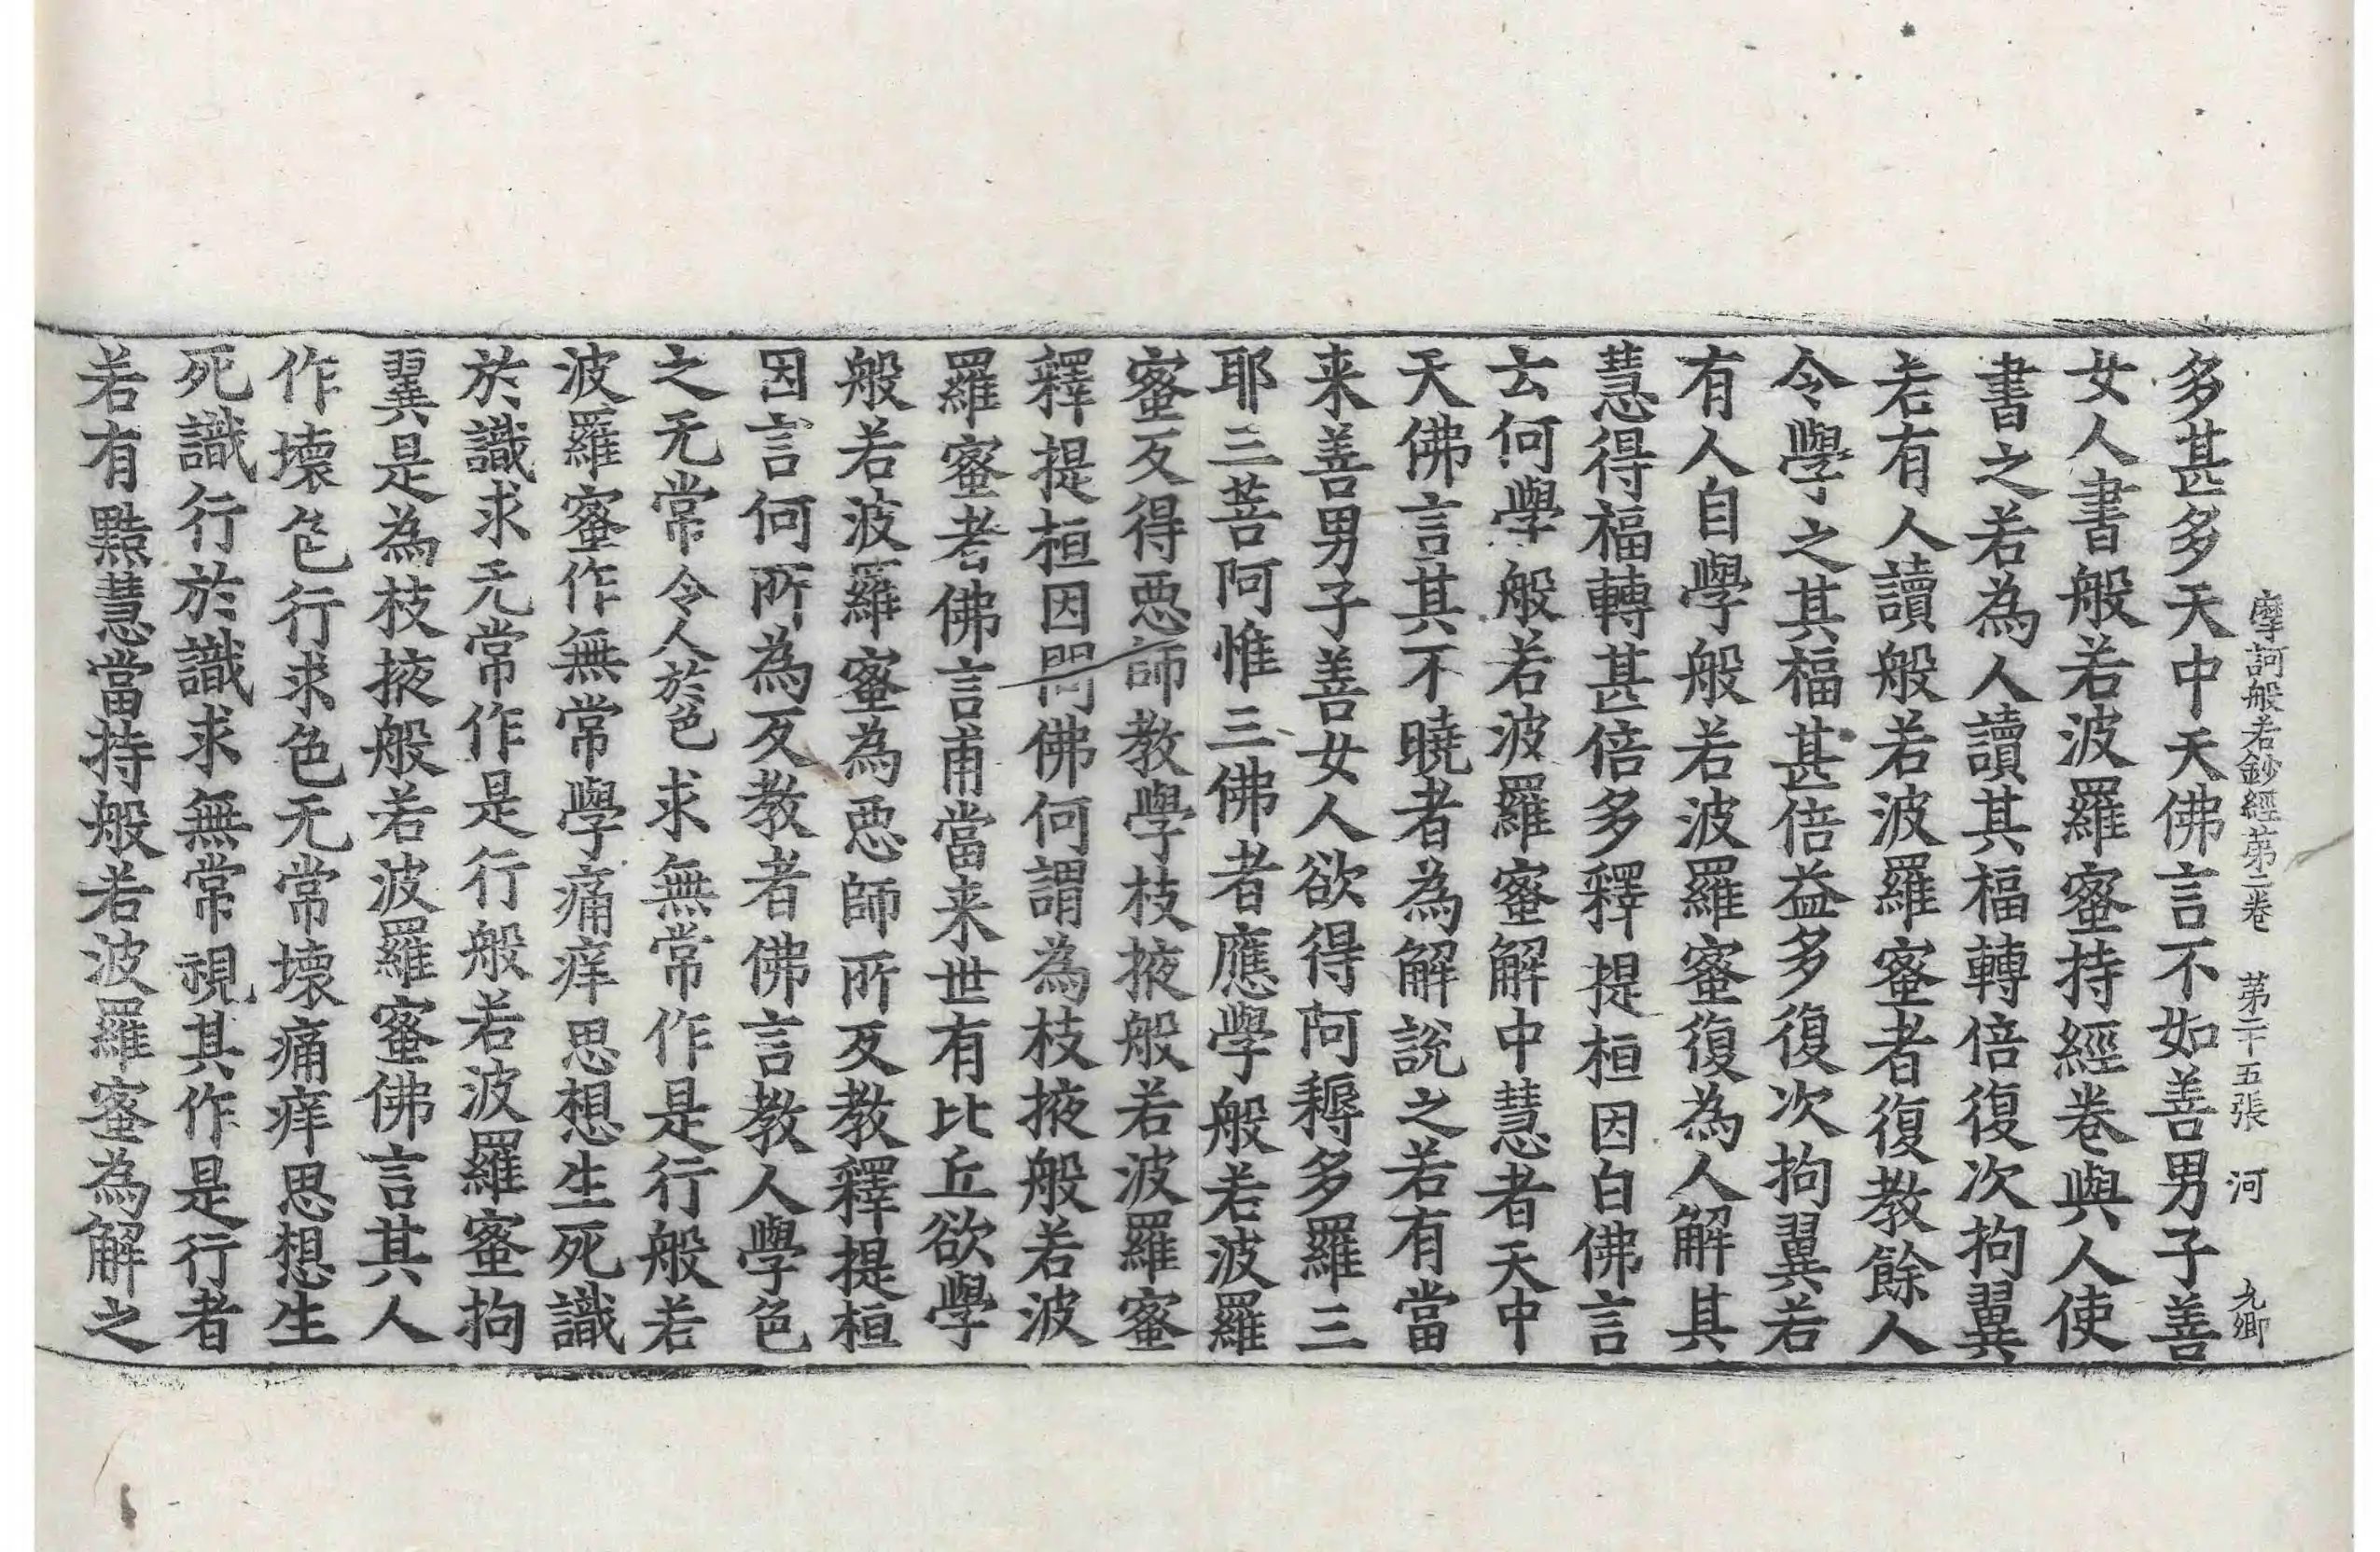 摩訶般若鈔經第二卷　第二十五張　河　九卿
多甚多天中天佛言不如善男子善
女人書般若波羅蜜持經卷與人使
書之若為人讀其福轉倍復次拘翼
若有人讀般若波羅蜜者復教餘人
令學之其福甚倍益多復次拘翼若
有人自學般若波羅蜜復為人解其
慧得福轉甚倍多釋提桓因白佛言
云何學般若波羅蜜解中慧者天中
天佛言其不曉者為解說之若有當
来善男子善女人欲得阿耨多羅三
耶三菩阿惟三佛者應學般若波羅
蜜反得惡師教學枝掖般若波羅蜜
釋提桓因問佛何謂為枝掖般若波
羅蜜者佛言甫當来世有比丘欲學
般若波羅蜜為惡師所反教釋提桓
因言何所為反教者佛言教人學色
之无常令人於色求無常作是行般若
波羅蜜作無常學痛痒思想生死識
於識求无常作是行般若波羅蜜拘
翼是為枝掖般若波羅蜜佛言其人
作壞色行求色无常壞痛痒思想生
死識行於識求無常視其作是行者
若有黠慧當持般若波羅蜜為解之